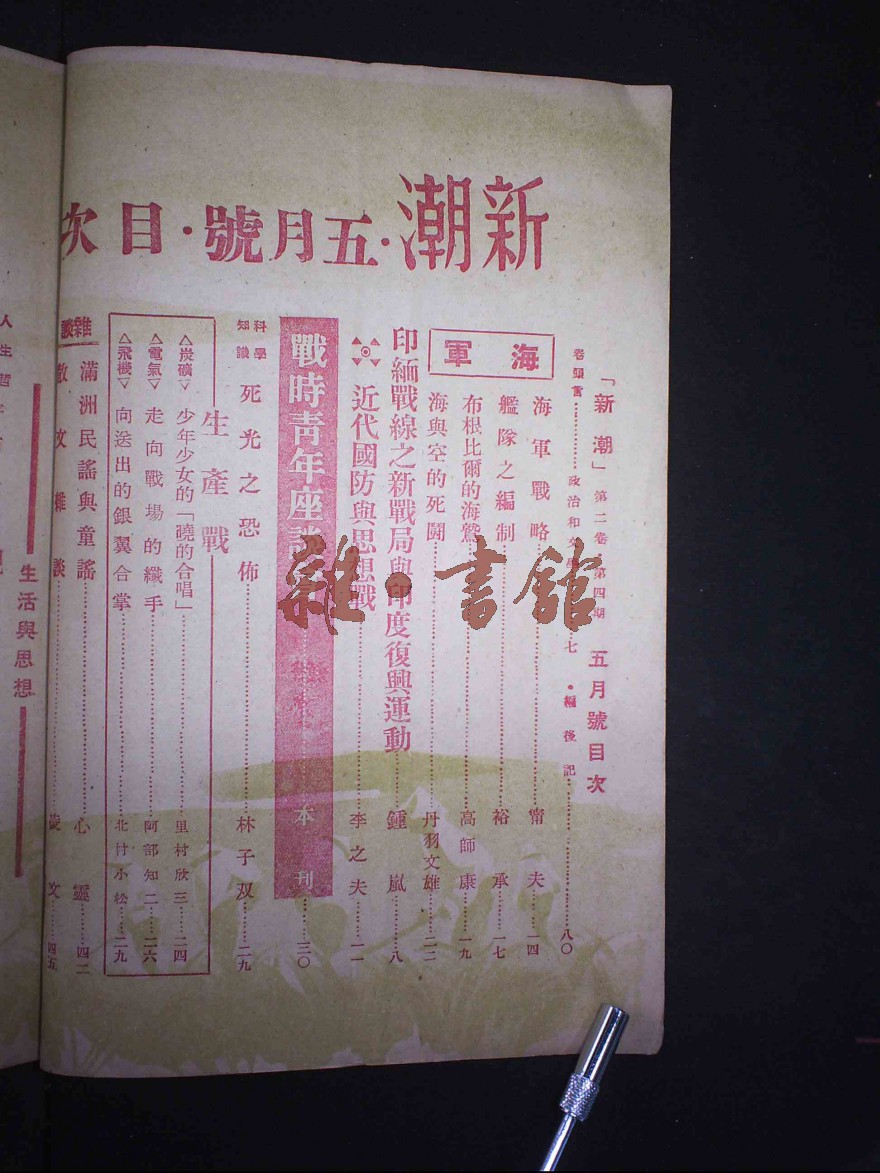 新潮·五月號·目次
「新潮」第二卷第四期 五月號目次
卷頭言……政治和文學……七 ·編後記……八〇
海軍
海軍戰略……甯夫……一四
艦隊之編制……裕承……一七
布根比爾的海鷲……高師康……一九
海與空的死鬪……丹羽文雄……二二
印緬戰線之新戰局與印度復興運動……鍾嵐……八
近代國防與思想戰……李之夫……一一
戰時青年座談……本刊……三〇
科學知識 死光之恐佈……林子双……二九
生產戰
△炭礦▽ 少年少女的「曉的合唱」……里村欣三……二四
△電氣▽ 走向戰場的纖手……阿部知二……二六
△飛機▽ 向送出的銀翼合掌……北村小松……二九
雜談
滿洲民謠與童謠……心靈……四二
散文雜談……文……四五
生活與思想
人生
雜·書館